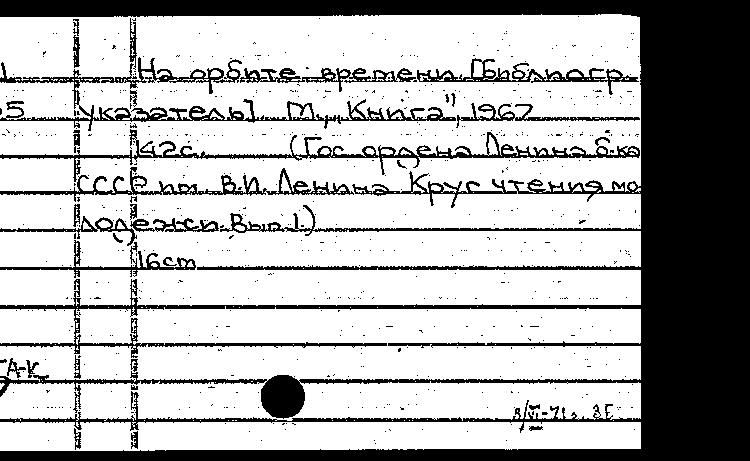 1 На орбите времени. [Библиогр.
5 указатель]. М., „Книга", 1967
142с. (Гос. ордена Ленина б-ка
СССР им. В.И. Ленина. Круг чтения мо
лодежи. Вып. 1.)
16cm
А-К